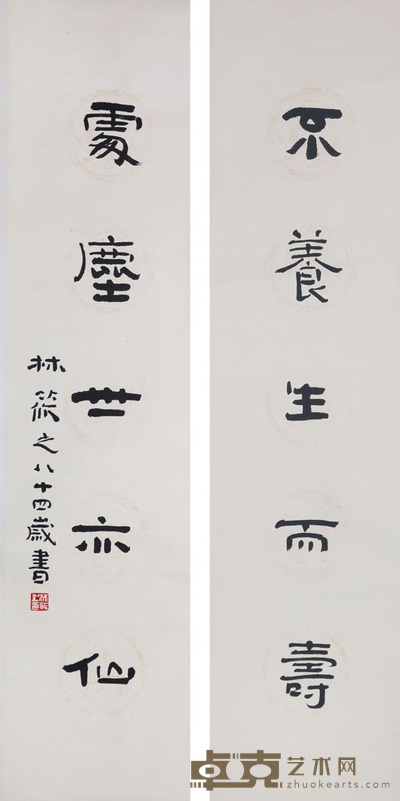 不養生而壽
處塵世亦仙
林筱之八十四歲書
卓克艺术网
zhuokearts.com